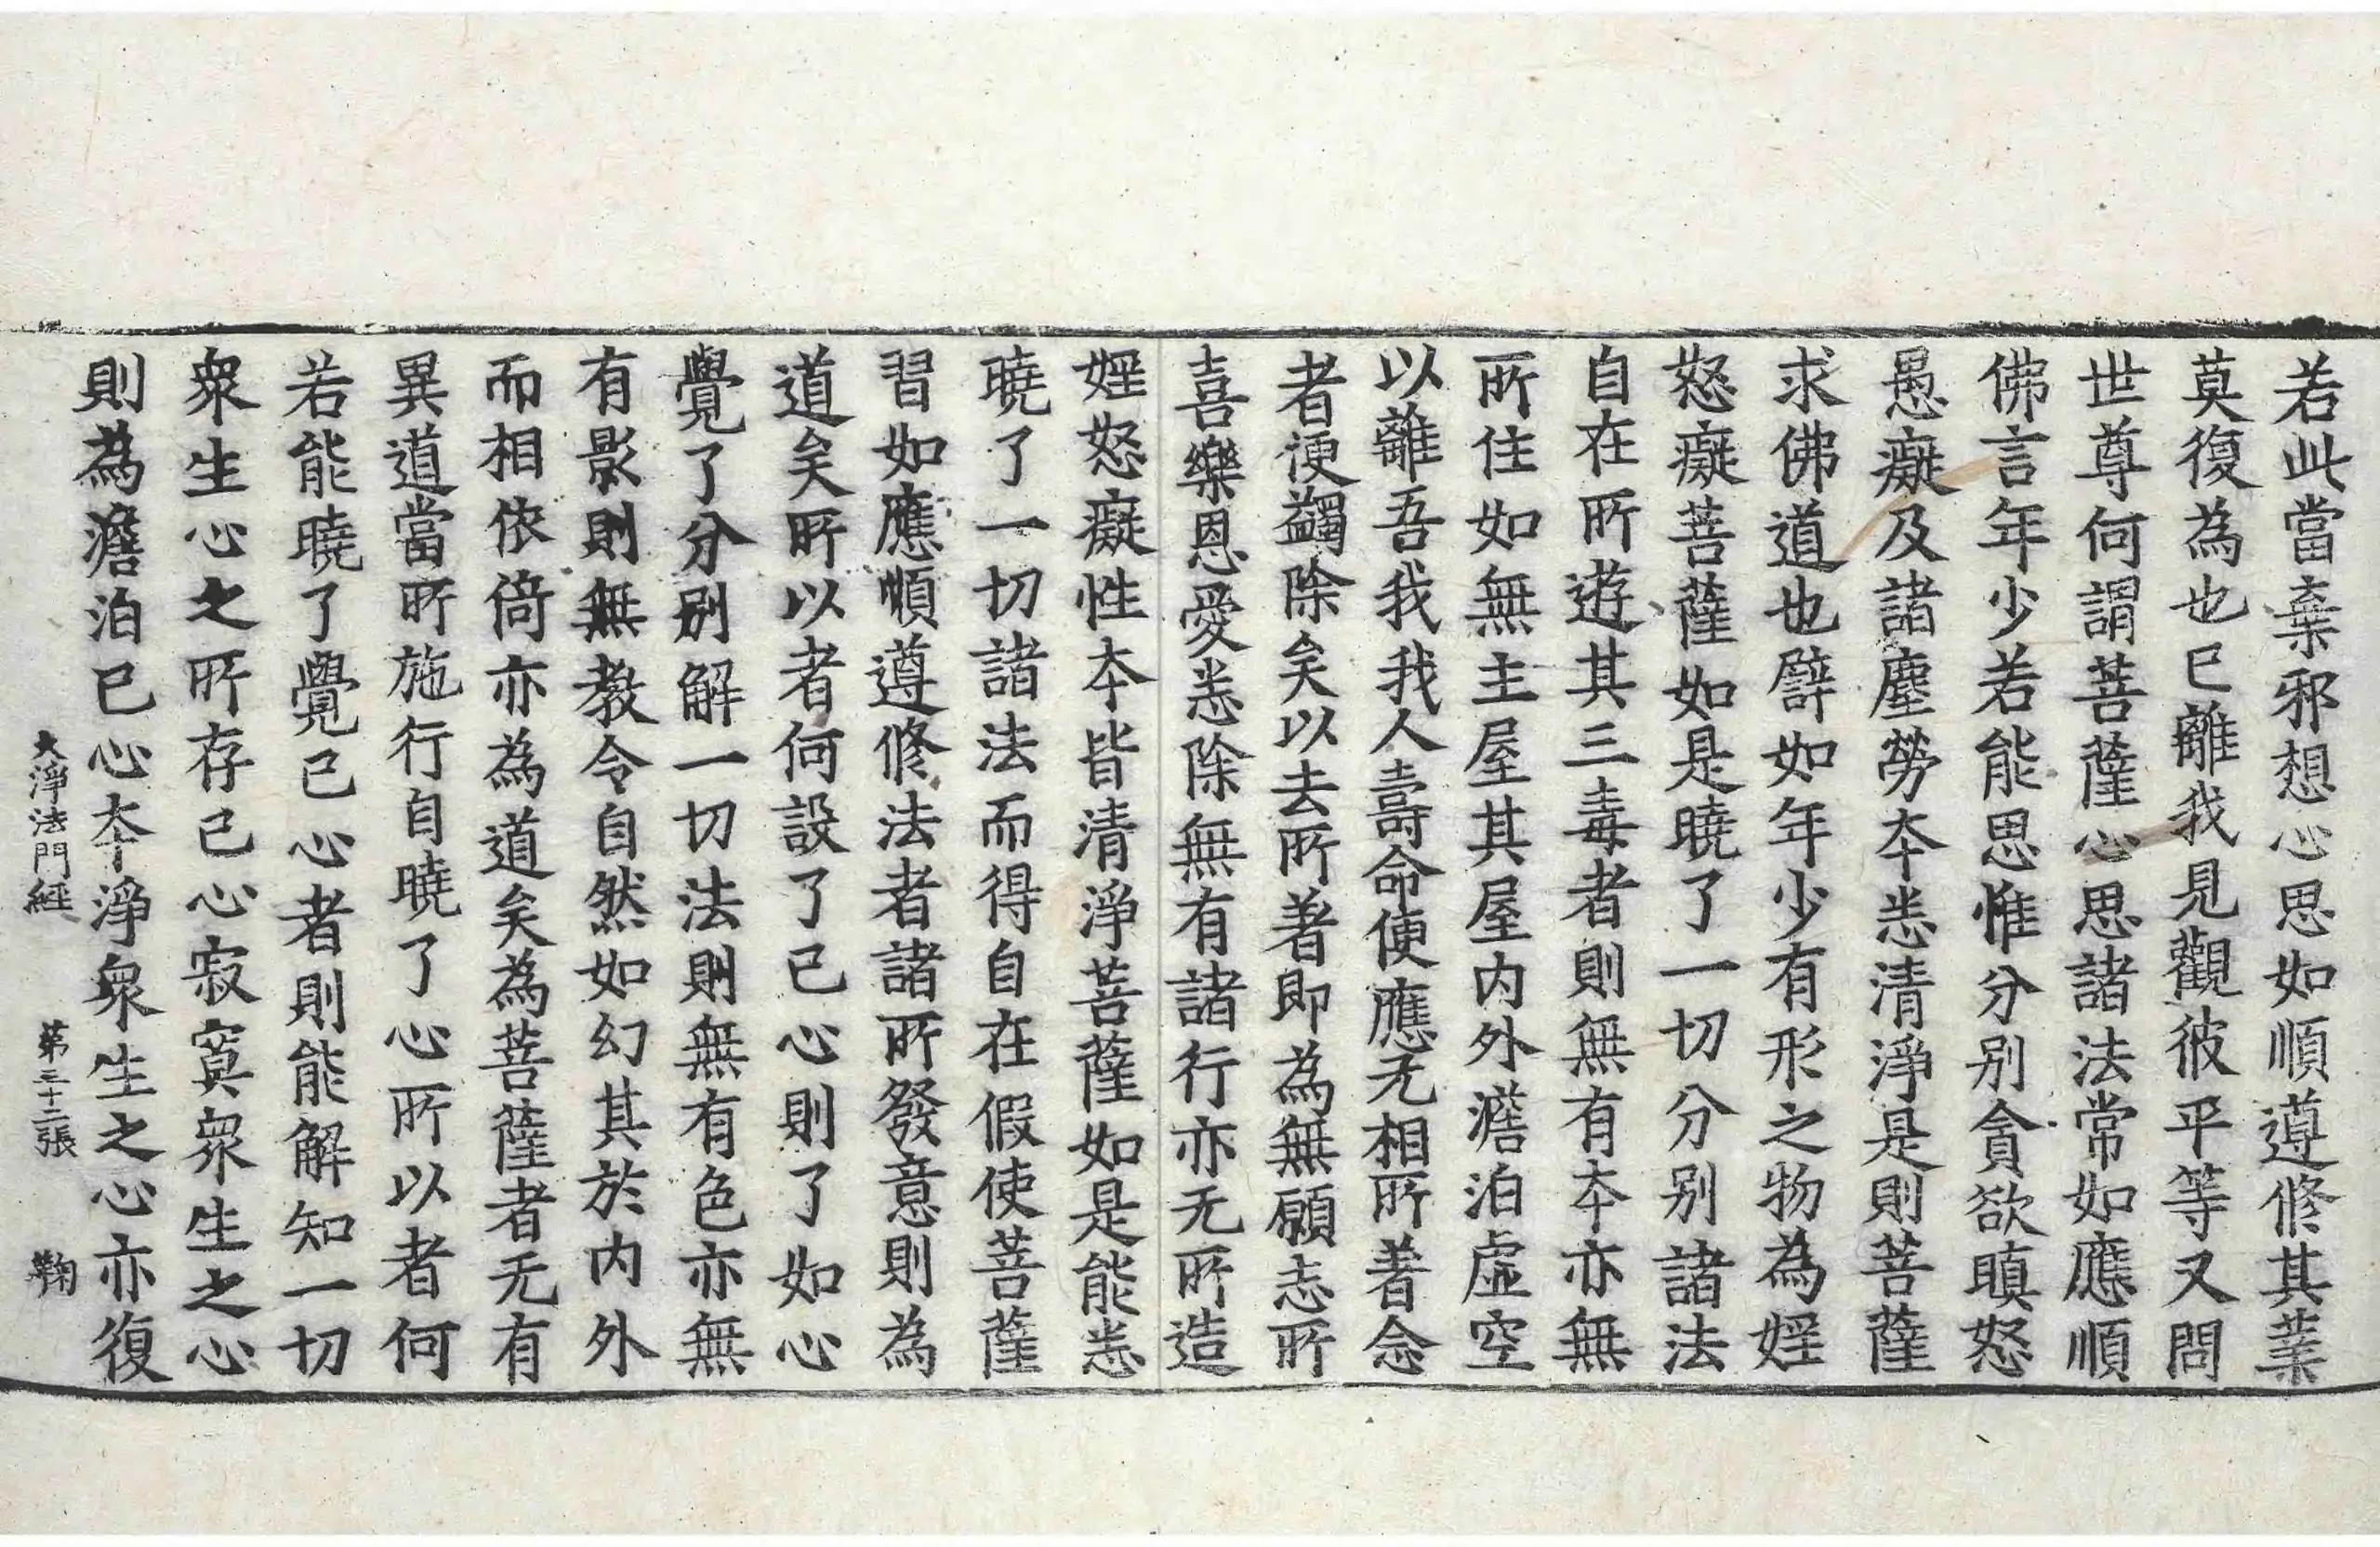 若此當棄邪想心思如順遵修其業
莫復為也已離我見觀彼平等又問
世尊何謂菩薩心思諸法常如應順
佛言年少若能思惟分別貪欲瞋怒
愚癡及諸塵勞本悉清淨是則菩薩
求佛道也譬如年少有形之物為婬
怒癡菩薩如是曉了一切分別諸法
自在所遊其三毒者則無有本亦無
所住如無主屋其屋内外澹泊虛空
以離吾我我人壽命使應无相所著念
者便蠲除矣以去所著即為無願志所
喜樂恩愛悉除無有諸行亦无所造
婬怒癡性本皆清淨菩薩如是能悉
曉了一切諸法而得自在假使菩薩
習如應順遵修法者諸所發意則為
道矣所以者何設了己心則了如心
覺了分別解一切法則無有色亦無
有影則無教令自然如幻其於内外
而相依倚亦為道矣為菩薩者无有
異道當所施行自曉了心所以者何
若能曉了覺己心者則能解知一切
衆生心之所存己心寂寞衆生之心
則為澹泊已心本淨衆生之心亦復
大淨法門經 第三十二張 鞠